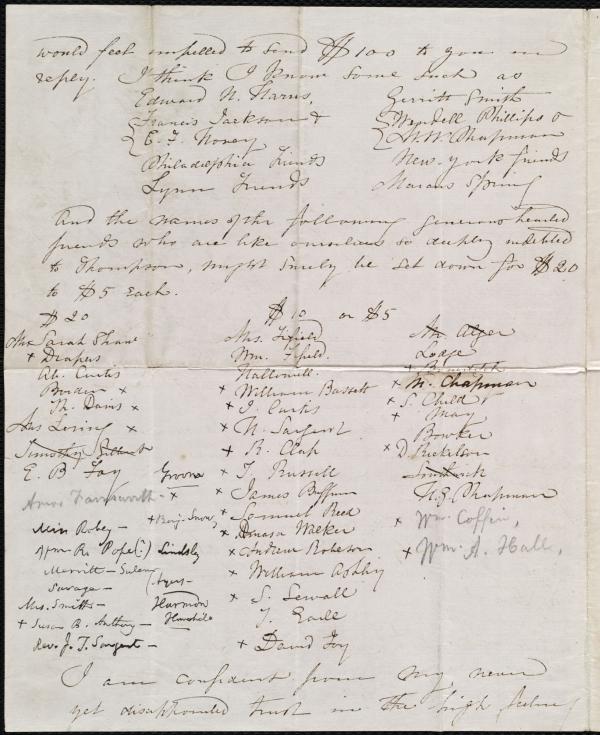 would feel impelled to send $100 to you in
reply. I think I know some such as
Edward N. Harris, Gerritt Smith
Francis Jackson & Wendell Phillips &
E. F. Hovey H. W. Chapman
Philadelphia Friends New-york friends
Lynn Friends Marcus Spring
And the names of the following generous hearted
friends who are like ourselves so deeply indebted
to Thompson, might surely be set down for $20
to $5 each.
$20 $10 or $5
Mrs Sarah Shaw Mrs. Fifield Mr Alger
+ Drapers Wm. Fifield. Lodge
Curtis Hallowell +
Borden x + William Bassett + M. Chapman
Th. Davis x + J. Curtis + S. Child
Mrs Loring x + N. Sargent + May
Timothy + R. Clap Bowker
E. B. Fay Groova + T. Russell + D. Ricketson
Amos Farnsworth - x + James Buffum Southwick
Miss Robey - + Benj. Snow, x Samuel Reed H. G. Chapman
Wm R. Pope (?) Lindsly x Amasa Walker x Wm. Coffin,
Merritt - Salem x Andrew Robeson + Wm. A. Hall,
Savage - Ayers - x William Ashby
Mrs. Smith - Harmon x S. Sewall
+ Susan B. Anthony - Haverhill T. Earle
Rev. J. T. Sargent - + David Joy
I am confident from my never
yet disappointed trust in the high feeling